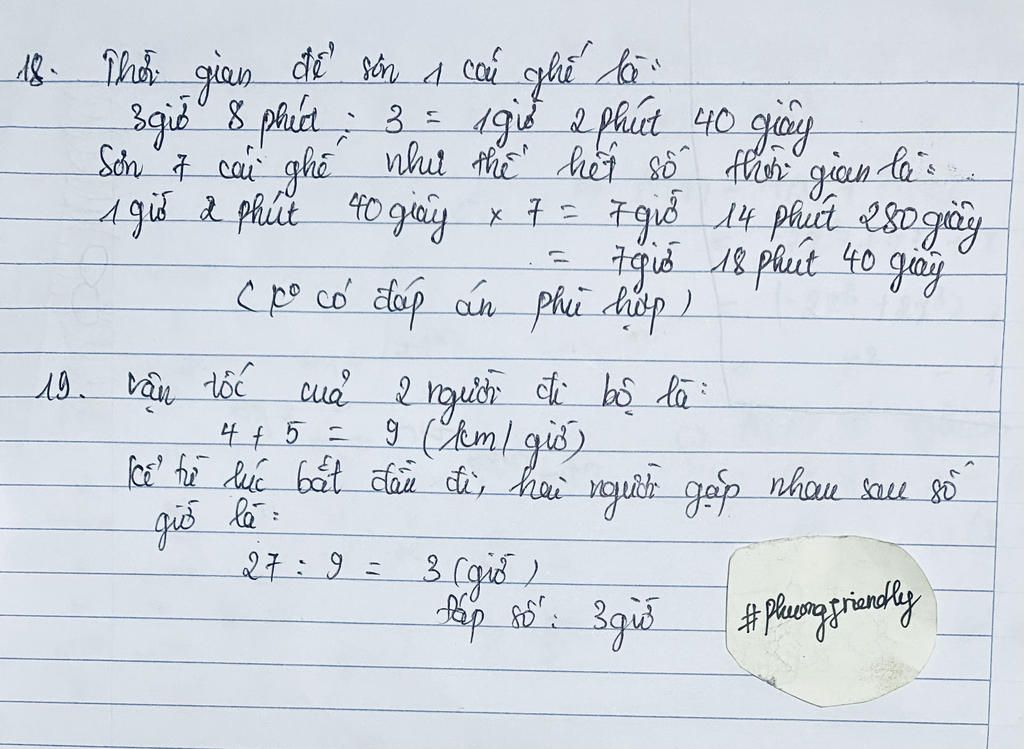 18. Thời gian để sơn 1 cái ghế là:
3giờ 8 phút : 3 = 1giờ 2 phút 40 giây
Sơn 7 cái ghế như thế hết số thời gian là:
1 giờ 2 phút 40 giây x 7 = 7giờ 14 phút 280 giây
= 7giờ 18 phút 40 giây
( k° có đáp án phù hợp )
19. Vận tốc của 2 người đi bộ là:
4 + 5 = 9 (km/giờ)
Kể từ lúc bắt đầu đi, hai người gặp nhau sau số
giờ là:
27 : 9 = 3 (giờ)
Đáp số: 3giờ
#phuongfriendly